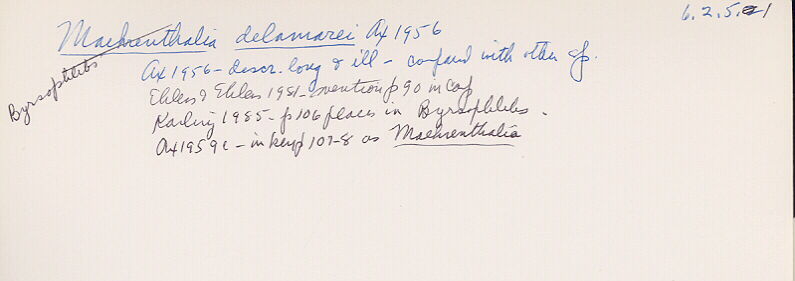 6.2.5.21
Maehrenthalia delamarei Ax 1956
Byrsophlebs
Ax 1956 - descr. long & ill - compared with other sp.
Ehlers & Ehlers 1981 - mention p 90 in cap
Karling 1985 - p 106 places in Byrsophlebs.
Ax 1959c - in key p 107-8 as Maehrenthalia